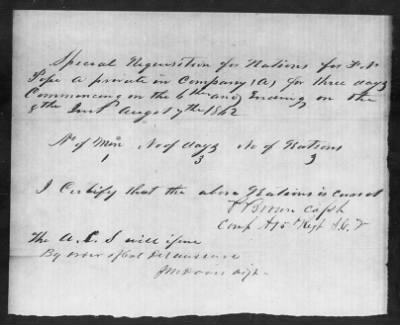 Special Requisition for Rations for F N
Pope A private in Company (A) for three days
Commencing on the 6th and Ending on the
8th Inst Augst 7th 1862
No of Men No of days No of Rations
1 3 3
I Certify that the above Rations is correct
Brown Capt
Comp A 15th Regt S. C. V
The A. C. S will issue
By order of Col DeSaussure